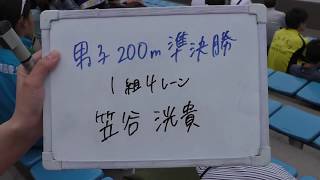 男子200m準決勝
1組4レーン
笠谷洸貴